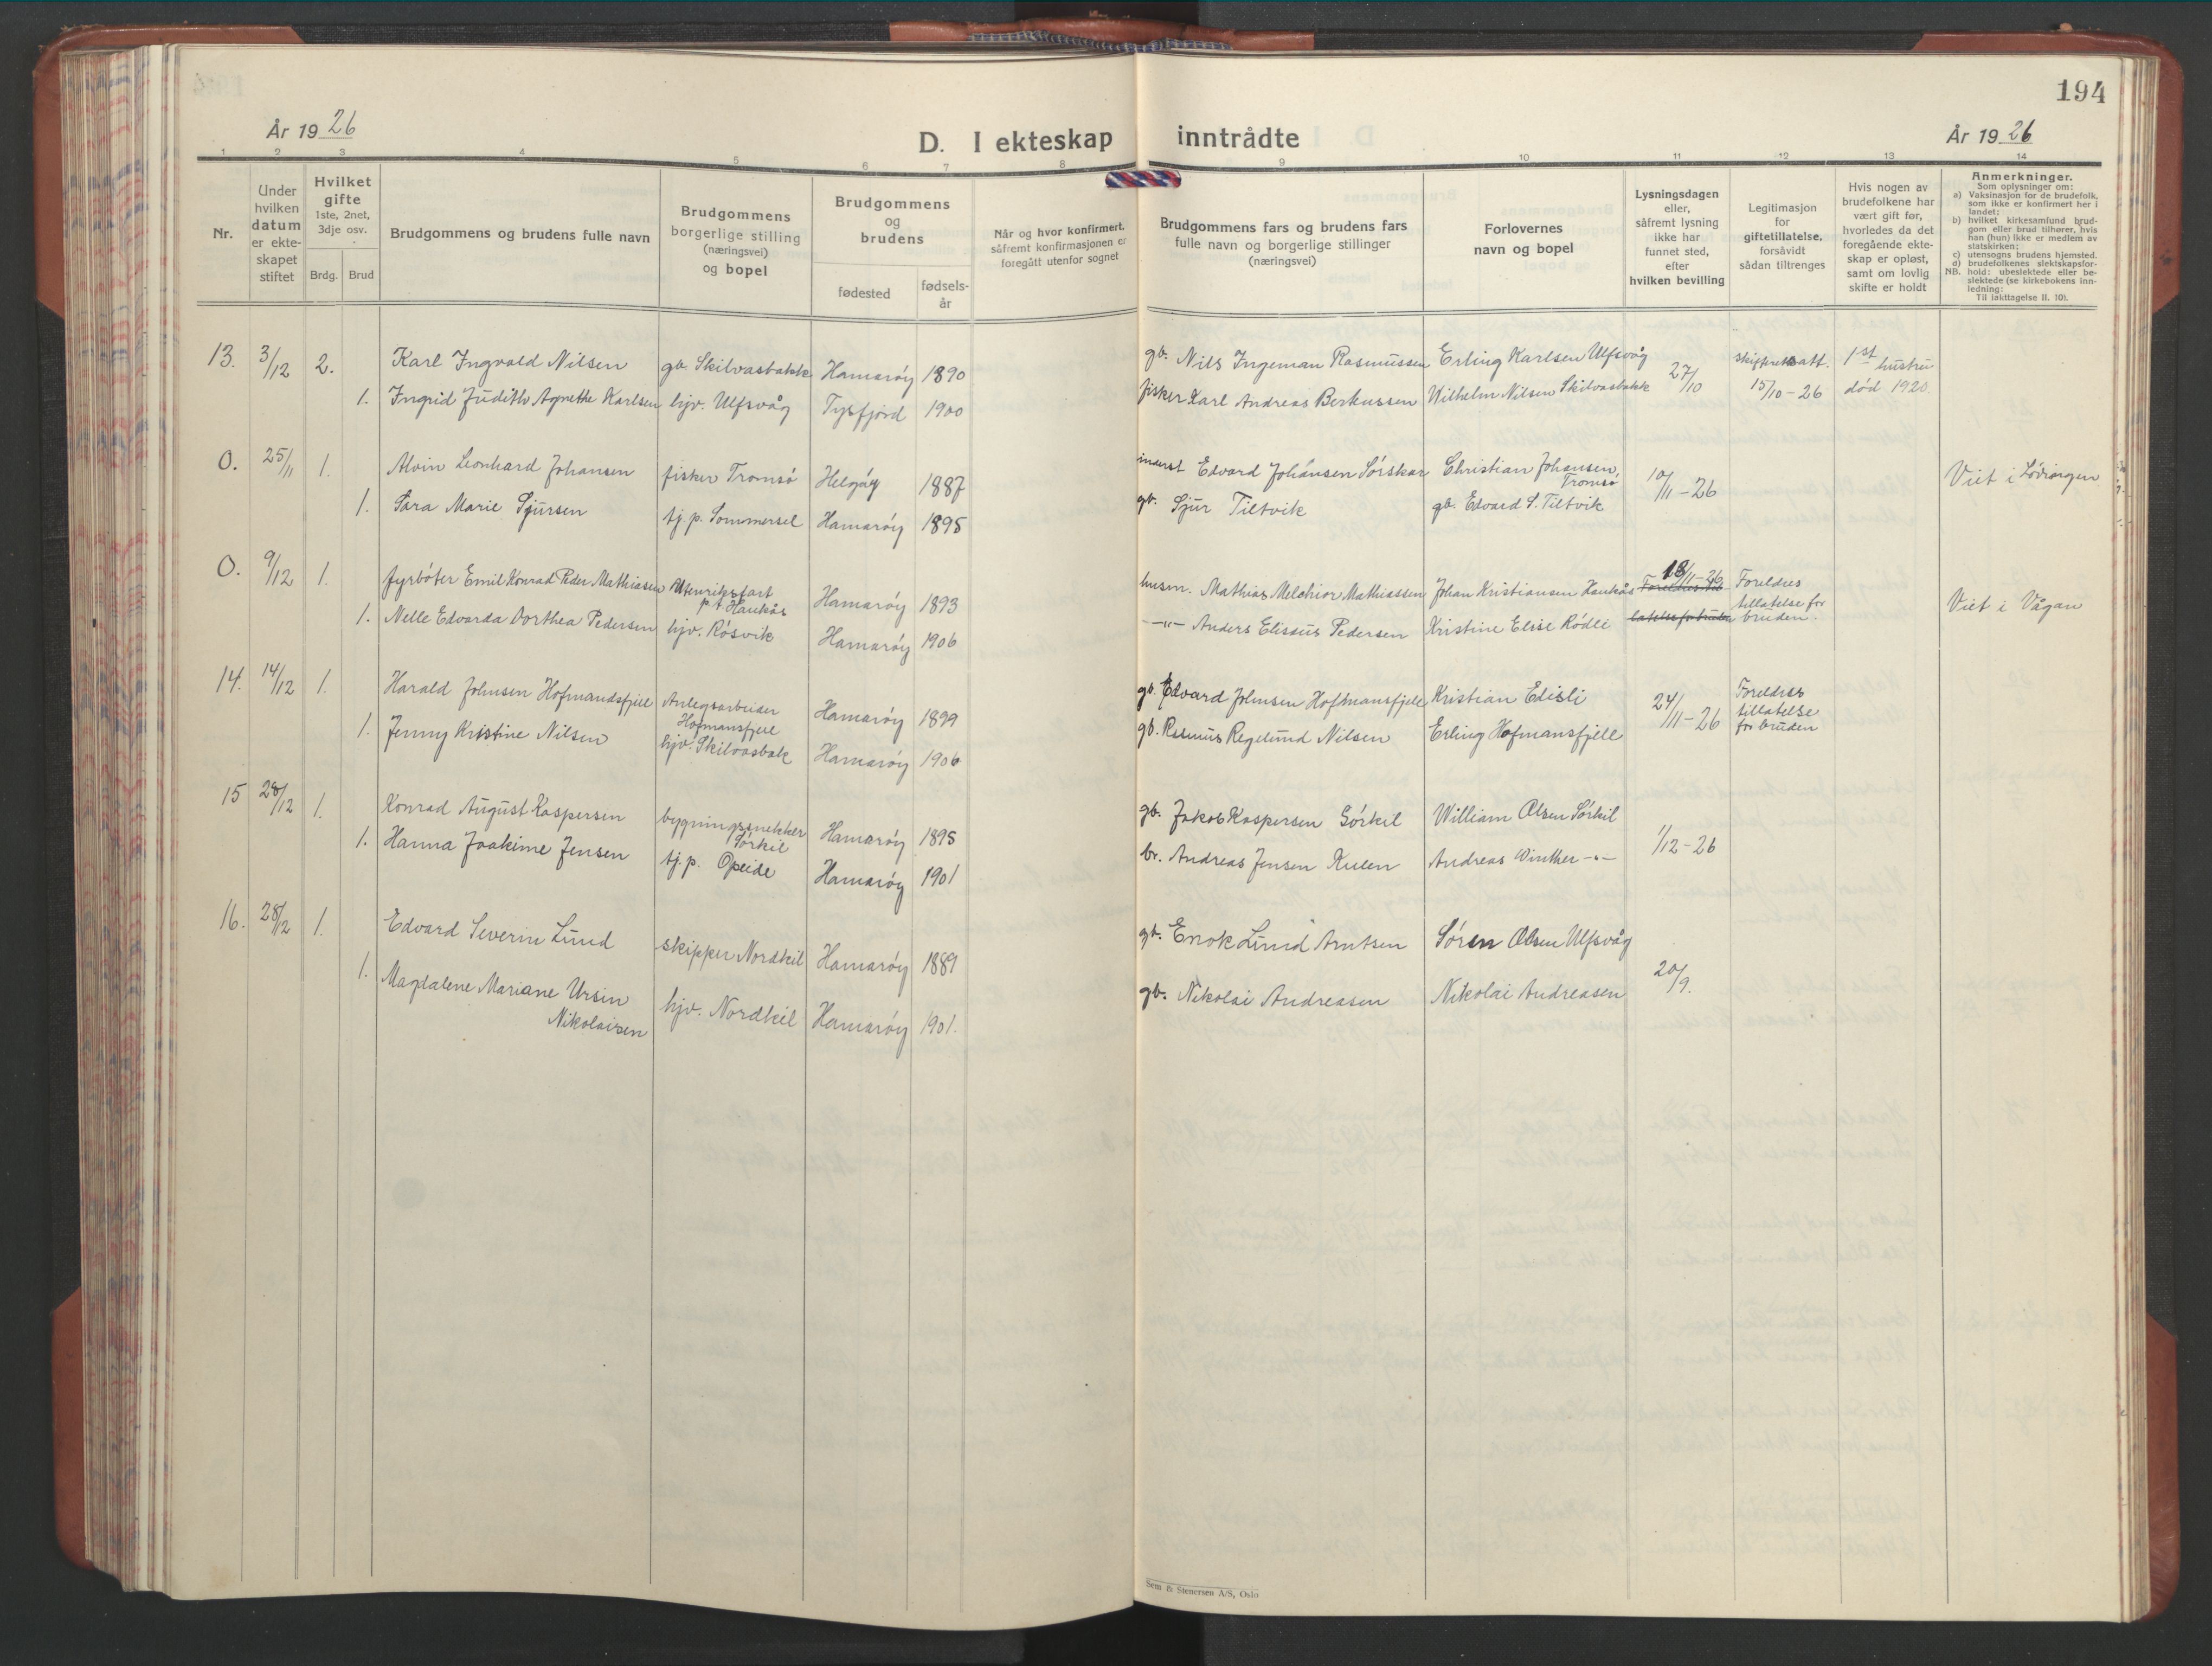 194
År 1926
D. I ekteskap inntrådte
År 1926
1 2 3 4 5 6 7 8 9 10 11 12 13 14
Nr.
Under hvilken datum er ekteskapet stiftet
Hvilket gifte 1ste, 2net, 3dje osv.
Brdg. Brud
Brudgommens og brudens fulle navn
Brudgommens borgerlige stilling (næringsvei) og bopel
Brudgommens og brudens
fødested
fødsels-år
Når og hvor konfirmert, såfremt konfirmasjonen er foregått utenfor sognet
Brudgommens fars og brudens fars fulle navn og borgerlige stillinger (næringsvei)
Forlovernes navn og bopel
Lysningsdagen eller, såfremt lysning ikke har funnet sted, efter hvilken bevilling
Legitimasjon for giftetillatelse, forsåvidt sådan tiltrenges
Hvis nogen av brudefolkene har vært gift før, hvorledes da det foregående ekteskap er opløst, samt om lovlig skifte er holdt
Anmerkninger.
Som oplysninger om:
a) Vaksinasjon for de brudefolk, som ikke er konfirmert her i landet;
b) hvilket kirkesamfund brudgom eller brud tilhører, hvis han (hun) ikke er medlem av statskirken;
c) utensogns brudens hjemsted.
d) brudefolkenes slektskapsforhold: ubeslektede eller beslektede (se kirkebokens innledning:
NB. Til iakttagelse II, 10).
13. 3/12 2. Karl Ingvald Nilsen gb. Skilvasbakk Hamarøy 1890 gb. Nils Ingeman Rasmussen Erling Karlsen Ulfsvåg 27/10 skifteratt. 15/10-26 1st hustru død 1920.
1. Ingrid Judith Agnethe Karlsen hjv. Ulfsvåg Tysfjord 1900 fisker Karl Andreas Berkussen Wilhelm Nilsen Skilvasbakk
0. 25/11 1. Alvin Leonhard Johansen fisker Tromsø Helgøy 1887 inderst Edvard Johansen Sørskar Christian Johansen, Tromsø 10/11-26 Viet i Lødingen
1. Sara Marie Sjursen tj.p. Sommersel Hamarøy 1895 gb. Sjur Tiltvik gb. Edvard S. Tiltvik
0. 9/12 1. fyrbøter Emil Konrad Peder Mathiasen Utenriksfart p.t. Haukås Hamarøy 1893 husm. Mathias Melchior Mathiassen Johan Kristiansen Haukås 18/11-26 Foreldres tillatelse for bruden. Viet i Vågan
1. Nelle Edvarda Dorthea Pedersen hjv. Røsvik Hamarøy 1906 -"- Anders Elissus Pedersen Kristine Elise Rødli
14. 14/12 1. Harald Johnsen Hofmandsfjell Anlegsarbeider Hofmansfjell Hamarøy 1899 gb. Edvard Johnsen Hoffmansfjell Kristian Edisli 24/11-26 Foreldres tillatelse for bruden
1. Jenny Kristine Nilsen hjv. Skilvasbak Hamarøy 1906 gb. Rasmus Regelund Nilsen Erling Hofmansfjell
15 28/12 1. Konrad August Kaspersen bygningssnekker Sørkil Hamarøy 1895 gb. Jakob Kaspersen Sørkil William Olsen Sørkil 1/12-26
1. Hanna Joakime Jensen tj.p. Opeide Hamarøy 1901 br. Andreas Jensen Kulen Andreas Winther -"-
16. 28/12 1. Edvard Severin Lund skipper Nordkil Hamarøy 1889 gb. Enok Lund Arntsen Søren Olsen Ulfsvåg 20/9.
1. Magdalene Mariane Ursin Nikolaisen hjv. Nordkil Hamarøy 1901. gb. Nikolai Andreasen Nikolai Andreasen
Sem & Stenersen A/S, Oslo